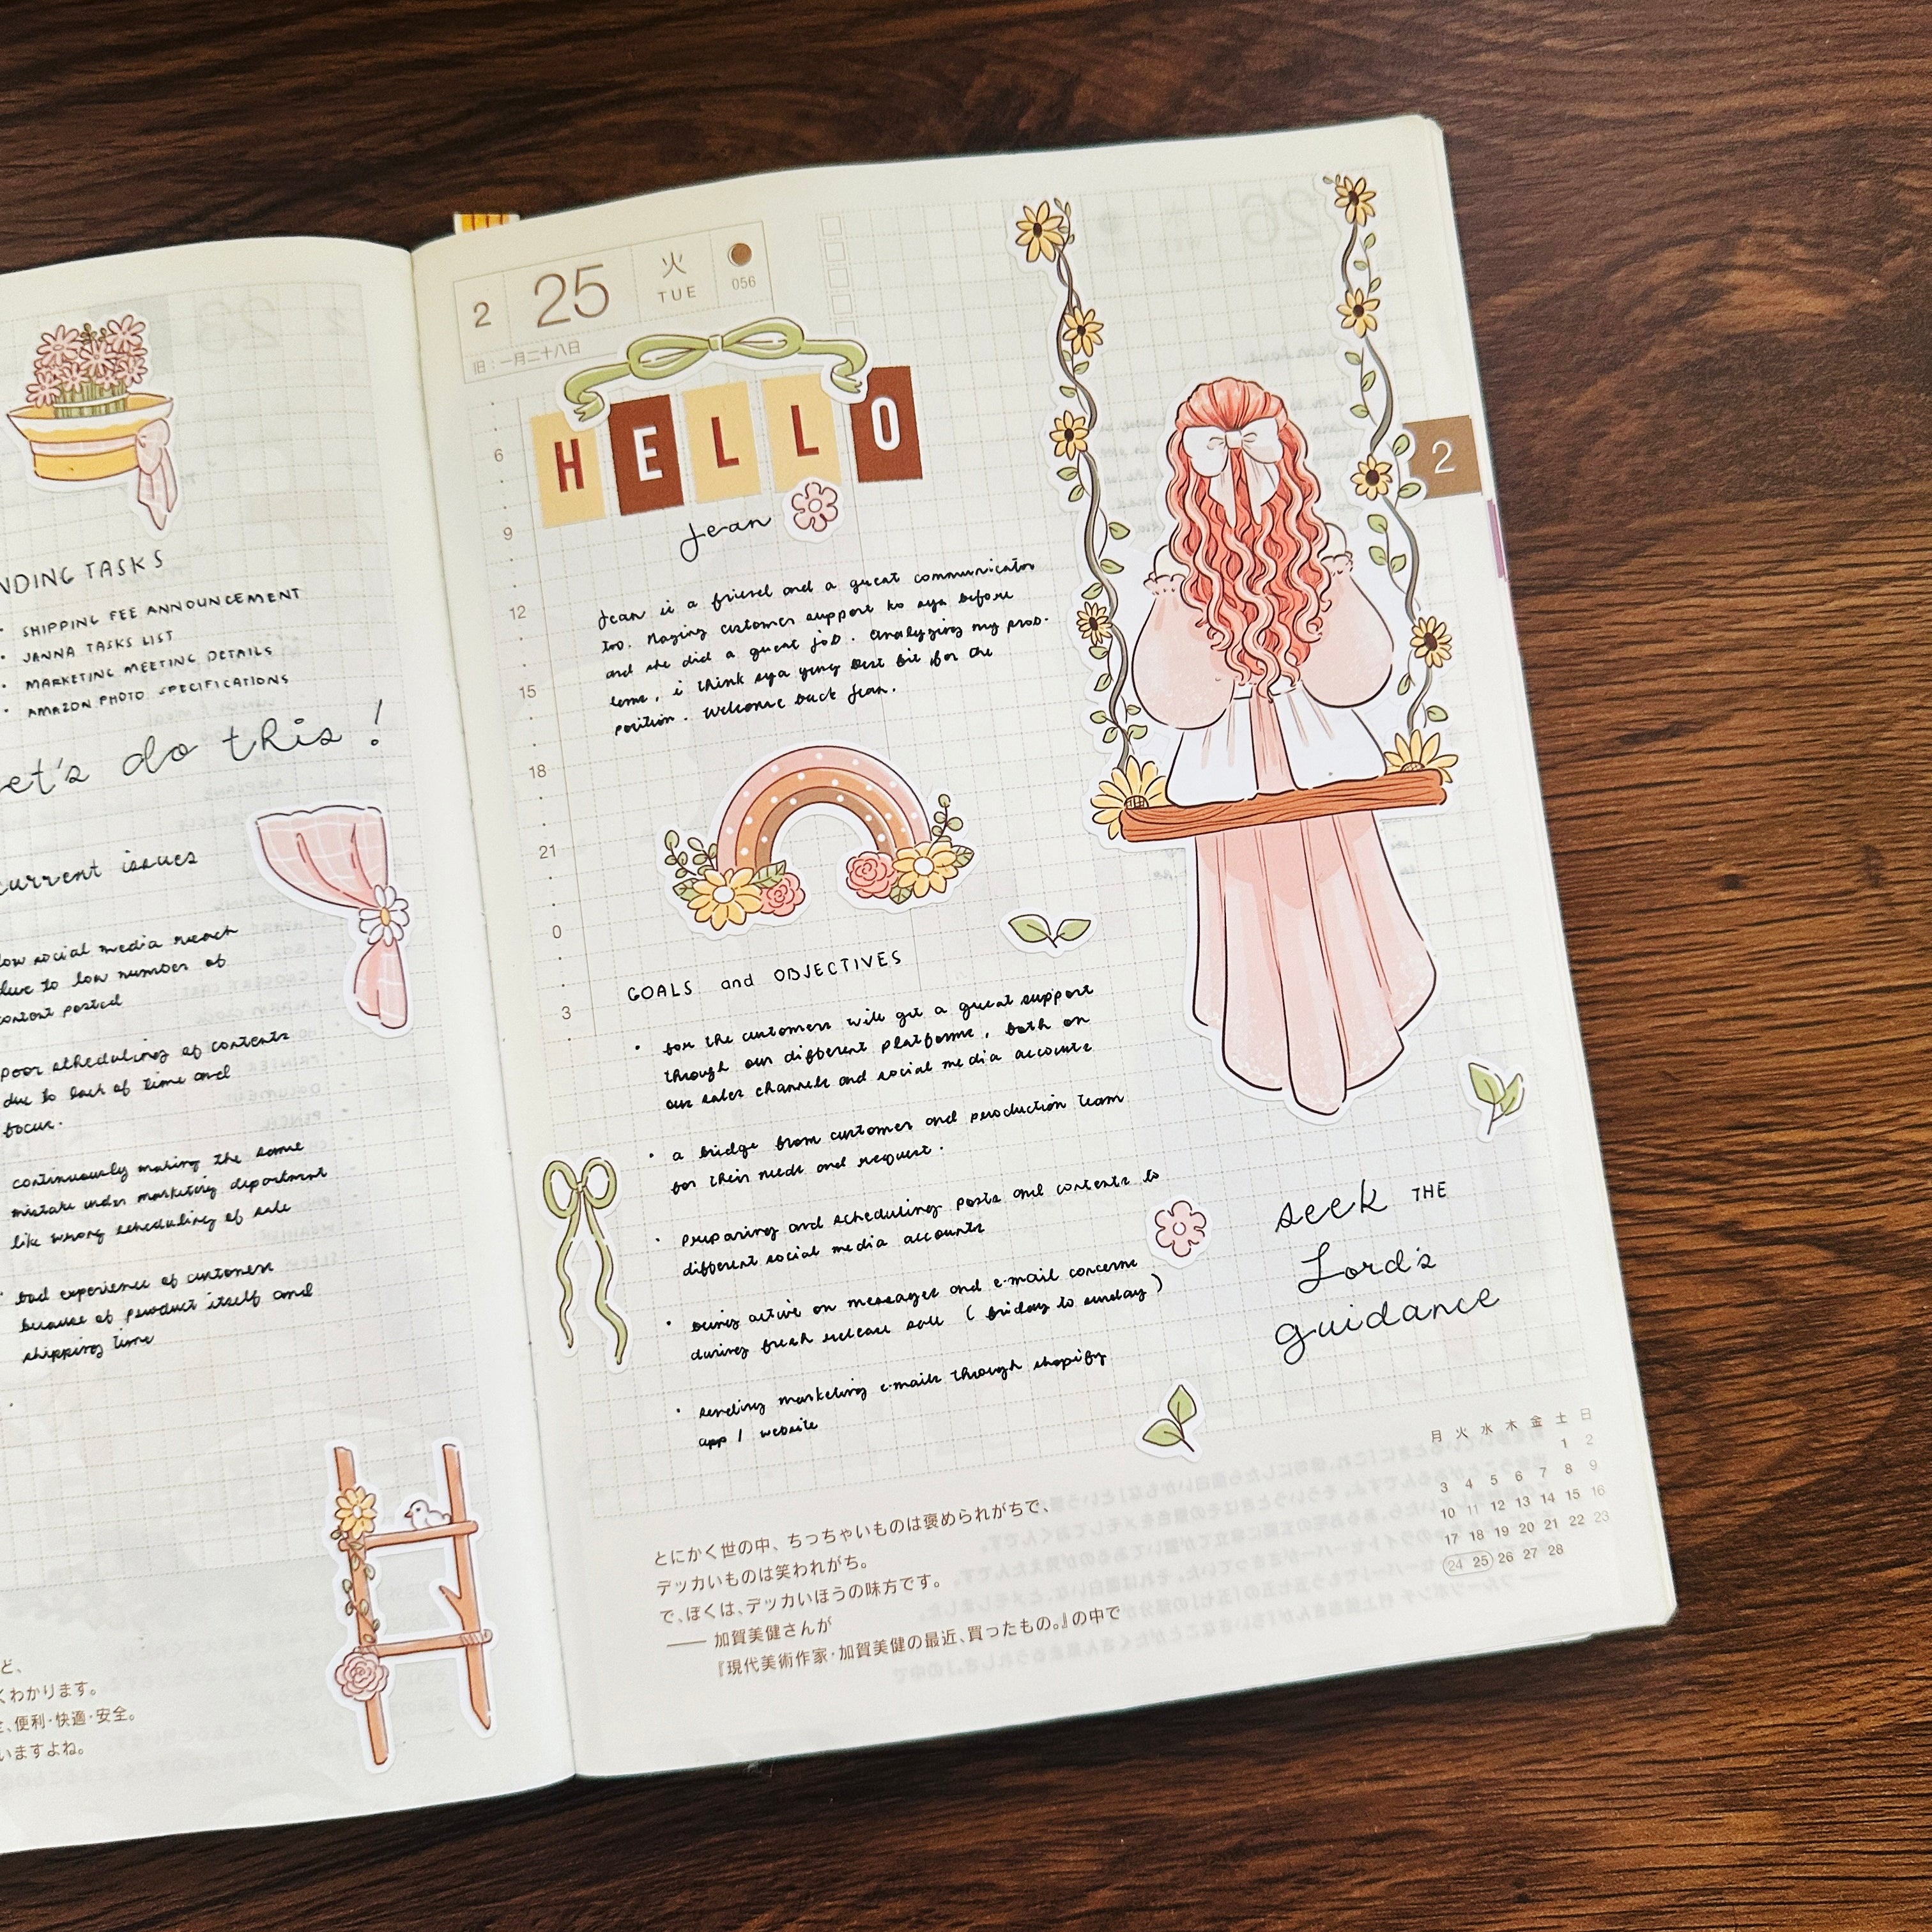 NDING TASKS
· SHIPPING FEE ANNOUNCEMENT
· JANNA TASKS LIST
· MARKETING MEETING DETAILS
· AMAZON PHOTO SPECIFICATIONS
et's do this!
current issues
low social media reach
due to low number of
content posted
poor scheduling of contents
due to lack of time and
focus.
continuously making the same
mistake under marketing department
like wrong scheduling of sale
· bad experience of customers
because of product itself and
shipping time
ど、
くわかります。
、便利・快適・安全。
いますよね。
2 25 火 TUE 056
旧:一月二十八日
HELLO
Jean
Jean is a friend and a great communicator
too. customer support ko sya before
and she did a great job. Analyzing my prob-
lems, i think sya yung best fit for the
position. Welcome back Jean.
GOALS and OBJECTIVES
· for the customers will get a great support
through our different platforms, both on
our sales channels and social media accounts
· a bridge from customer and production team
for their needs and request.
· preparing and scheduling posts and contents to
different social media accounts
· being active on messages and e-mail concerns
during fresh release sale (friday to sunday)
· sending marketing e-mails through shopify
app / website
6
9
12
15
18
21
0
3
2
seek THE
Lord's
guidance
とにかく世の中、ちっちゃいものは褒められがちで、
デッカいものは笑われがち。
で、ぼくは、デッカいほうの味方です。
—— 加賀美健さんが
『現代美術作家・加賀美健の最近、買ったもの。』の中で
月 火 水 木 金 土 日
1 2
3 4 5 6 7 8 9
10 11 12 13 14 15 16
17 18 19 20 21 22 23
24 25 26 27 28